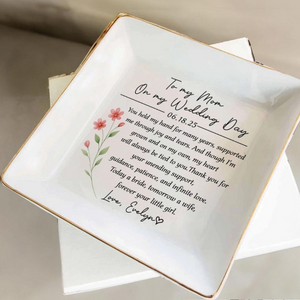 To my Mom
On my Wedding Day
06.18.25
You held my hand for many years, supported
me through joy and tears. And though I'm
grown and on my own, my heart
will always be tied to you. Thank you for
your unending support,
guidance, patience, and infinite love.
Today a bride, tomorrow a wife,
forever your little girl.
Love, Evelyn♡